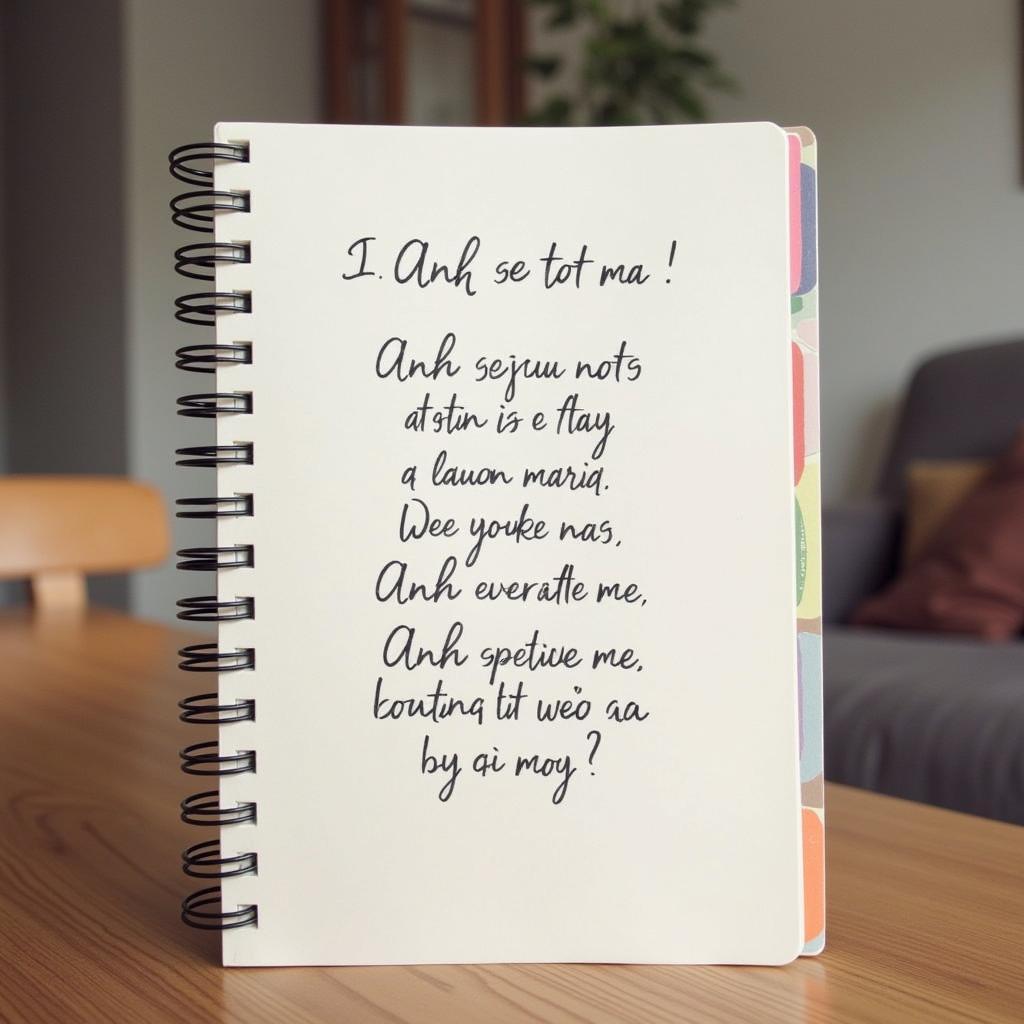 I. Anh se tot ma !
Anh sejuu nots
atstin is e flay
a lauon maria.
Wee youke nas,
Anh everatle me,
Anh spetive me,
bouting tit weo aa
by ai moy ?